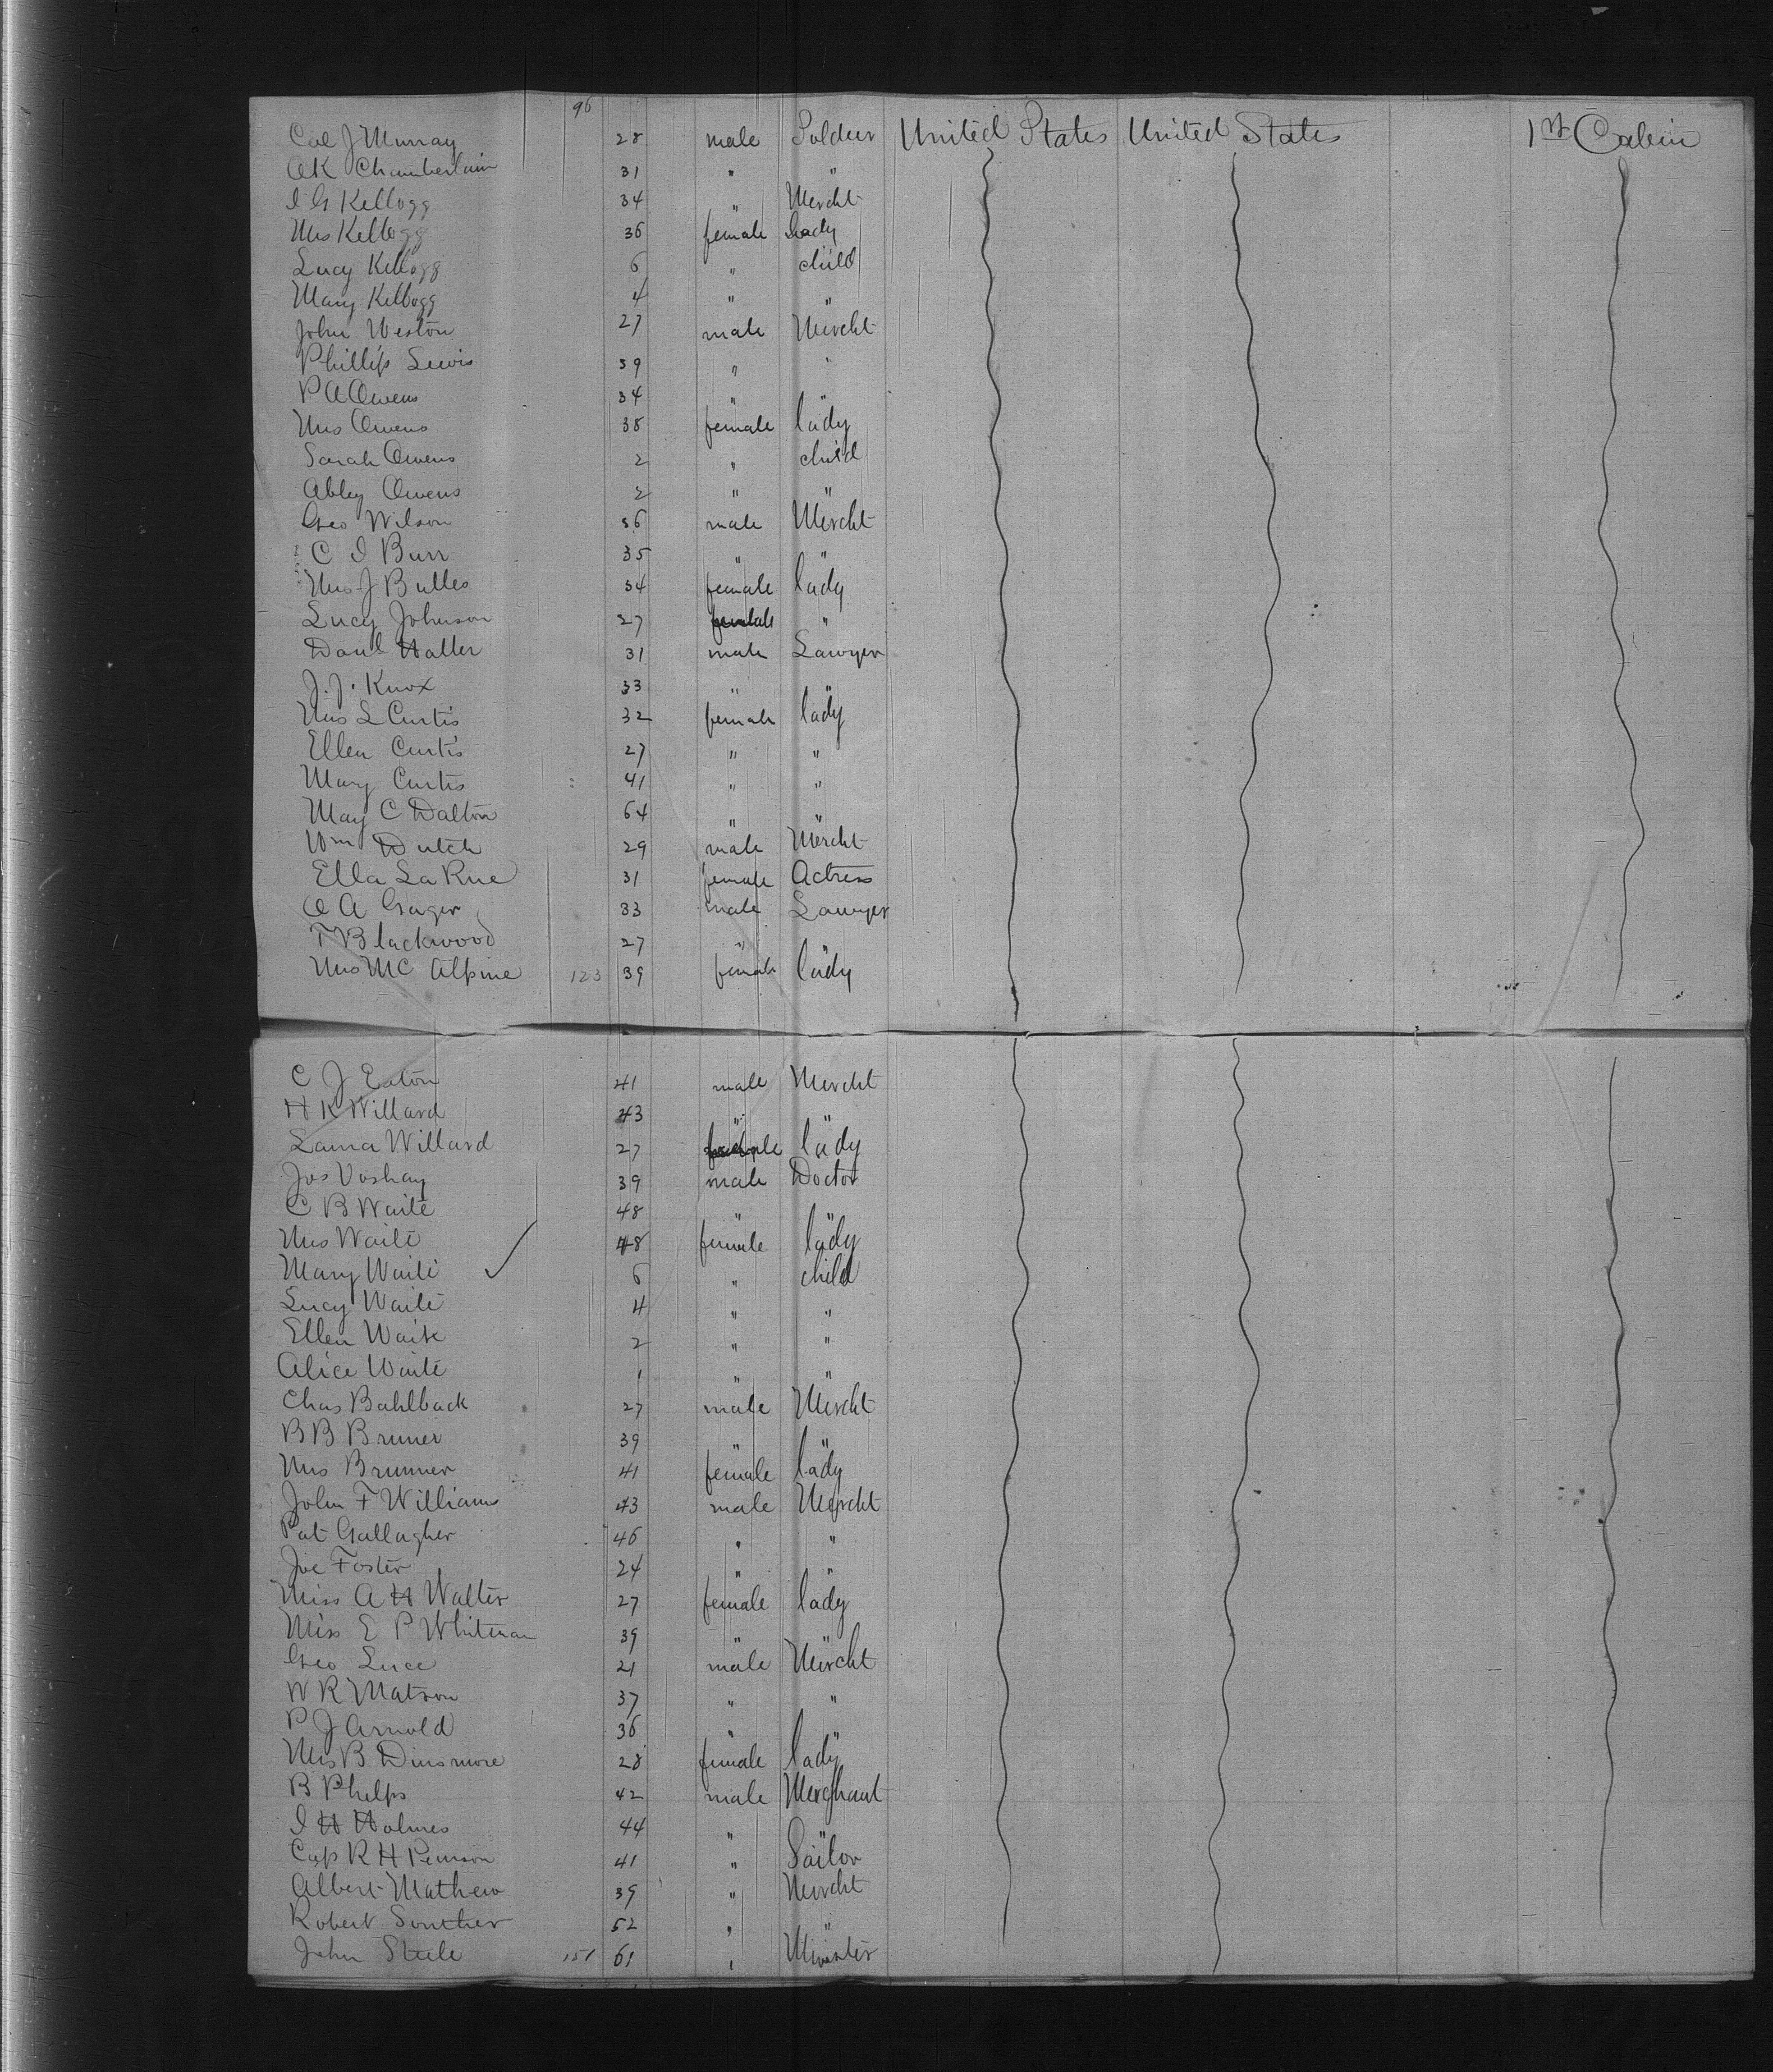 96
Col J Murray 28 male Soldier United States United States 1st Cabin
A K Chamberlain 31 " "
I G Kellogg 34 " Mercht
Mrs Kellogg 36 female Lady
Lucy Kellogg 6 " child
Mary Kellogg 4 " "
John Weston 27 male Mercht
Phillip Lewis 39 " "
P A Owens 34 "
Mrs Owens 38 female lady
Sarah Owens 2 " child
Abby Owens 2 " "
Geo Wilson 36 male Mercht
C I Burr 35 " "
Mrs J Bulles 34 female lady
Lucy Johnson 27 female "
Danl Haller 31 male Lawyer
J. J. Knox 33 " "
Mrs L Curtis 32 female lady
Ellen Curtis 27 " "
Mary Curtis 41 " "
May C Dalton 64 " "
Wm Dutch 29 male Mercht
Ella La Rue 31 female Actress
O A Gager 33 male Lawyer
T Blackwood 27 " "
Mrs Mc Alpine 123 39 female lady
C J Eaton 41 male Mercht
H K Willard 43 " "
Laura Willard 27 female lady
Jos Voshay 39 male Doctor
C B Waite 48 " "
Mrs Waite 48 female lady
Mary Waite ✓ 6 " child
Lucy Waite 4 " "
Ellen Waite 2 " "
Alice Waite 1 " "
Chas Bahlback 27 male Mercht
B B Bruner 39 " "
Mrs Brunner 41 female lady
John F Williams 43 male Mercht
Pat Gallagher 46 " "
Joe Foster 24 " "
Miss A H Walter 27 female lady
Miss E P Whitman 39 " "
Geo Luce 21 male Mercht
W R Matson 37 " "
P J Arnold 36 " "
Mrs B Dinsmore 28 female lady
B Phelps 42 male Merchant
I H Holmes 44 " "
Cap R H Pearson 41 " Sailor
Albert Mathew 39 " Mercht
Robert Souther 52 " "
John Steele 151 61 " Minister